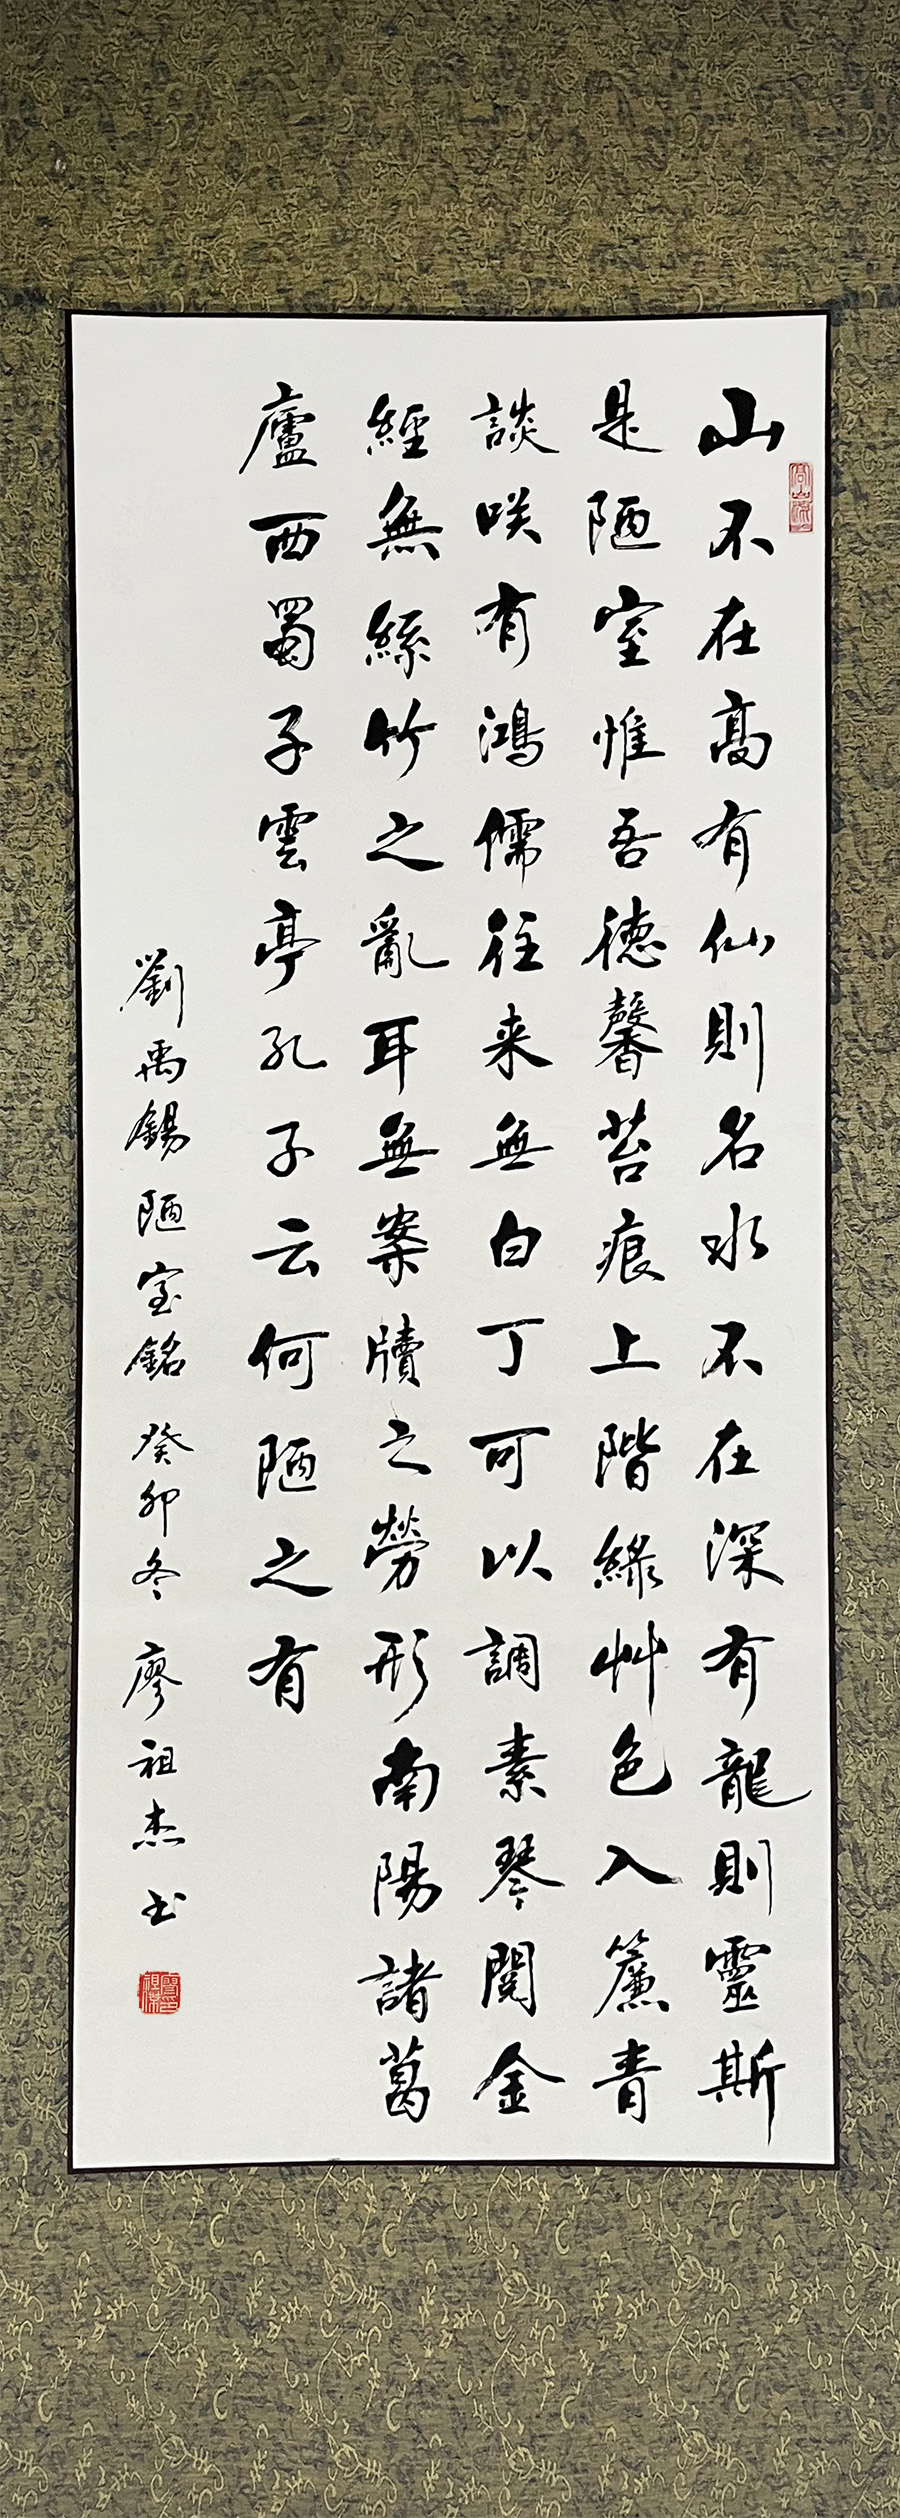 山不在高有仙則名水不在深有龍則靈斯
是陋室惟吾德馨苔痕上階綠艸色入簾青
談咲有鴻儒往来無白丁可以調素琴閱金
經無絲竹之亂耳無案牘之勞形南陽諸葛
廬西蜀子雲亭孔子云何陋之有
劉禹錫陋室銘癸卯冬廖祖杰书